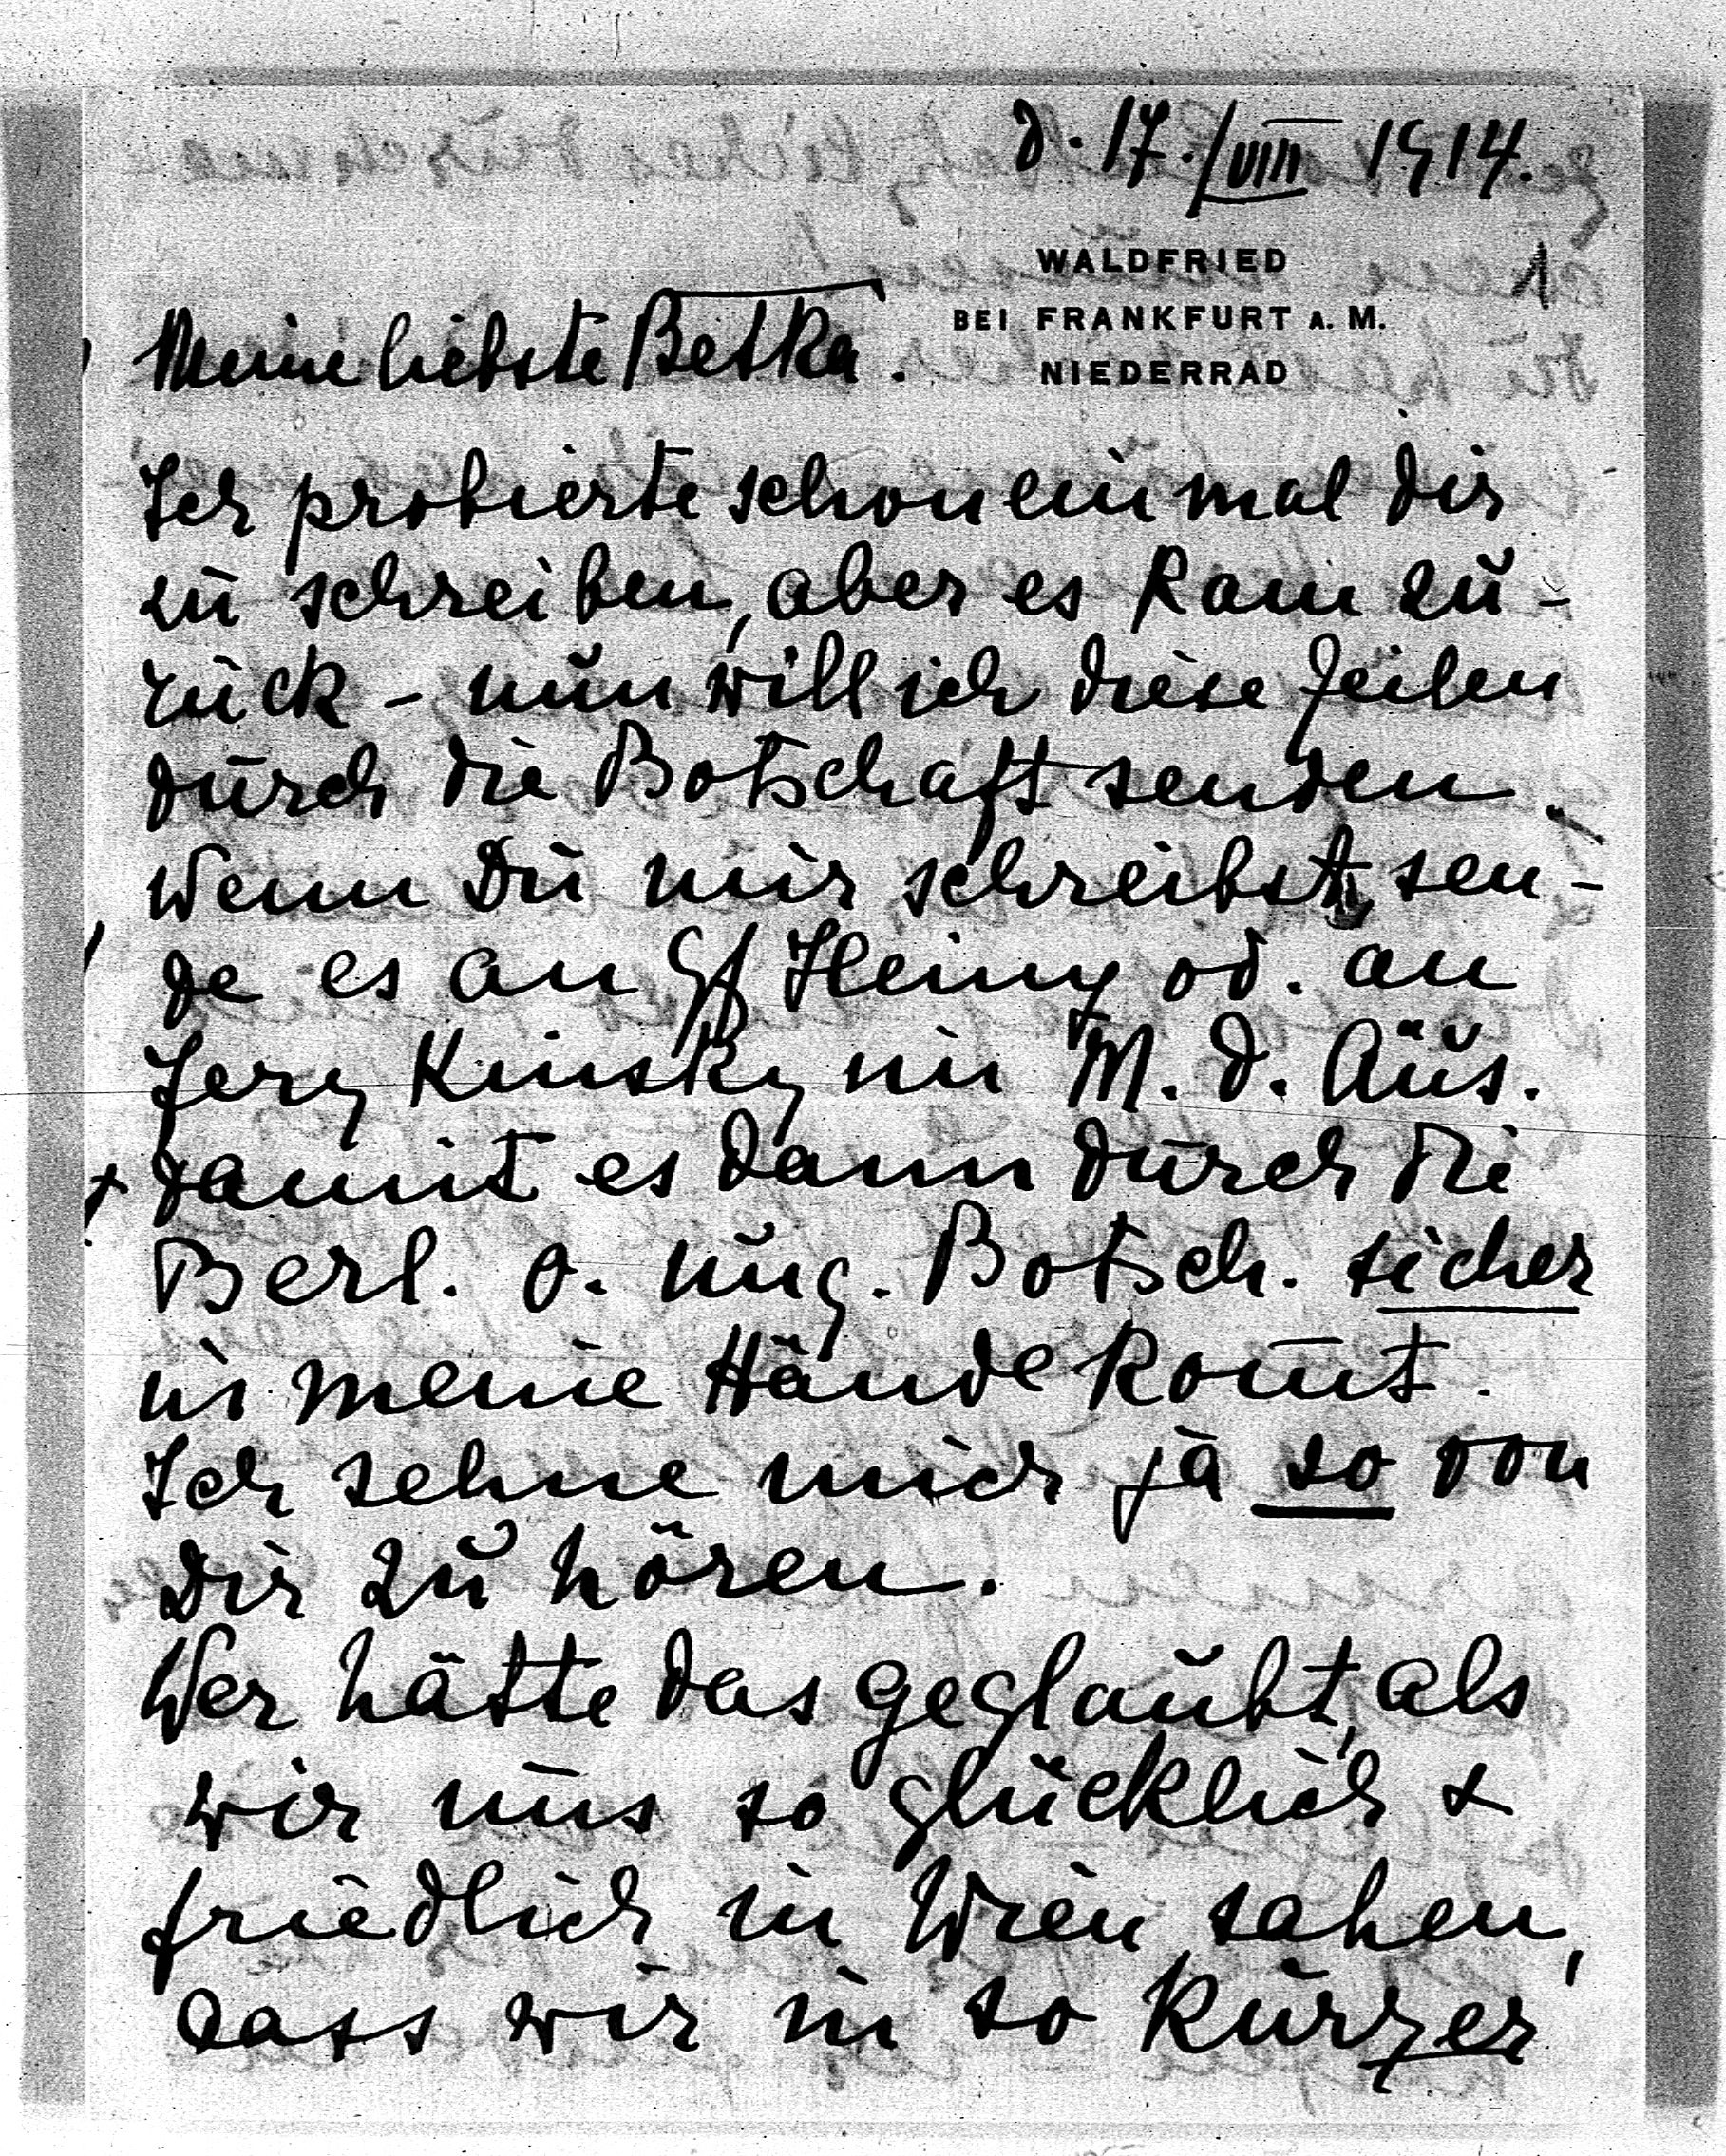 d. 17./VIII 1914.
WALDFRIED
BEI FRANKFURT A. M.
NIEDERRAD
1
Meine liebste Betka.
Ich probierte schon einmal dir
zu schreiben, aber es kam zu-
rück – nun will ich diese Zeilen
durch die Botschaft senden.
Wenn Du mir schreibst, sen-
de es an Gf Heiny od. an
Jery Kinsky im M. d. Äus.
damit es dann durch die
Berl. ö. ung. Botsch. sicher
in meine Hände kom̅t.
Ich sehne mich ja so von
Dir zu hören.
Wer hätte das geglaubt, als
wir uns so glücklich &
friedlich in Wien sahen,
dass wir in so kurzer